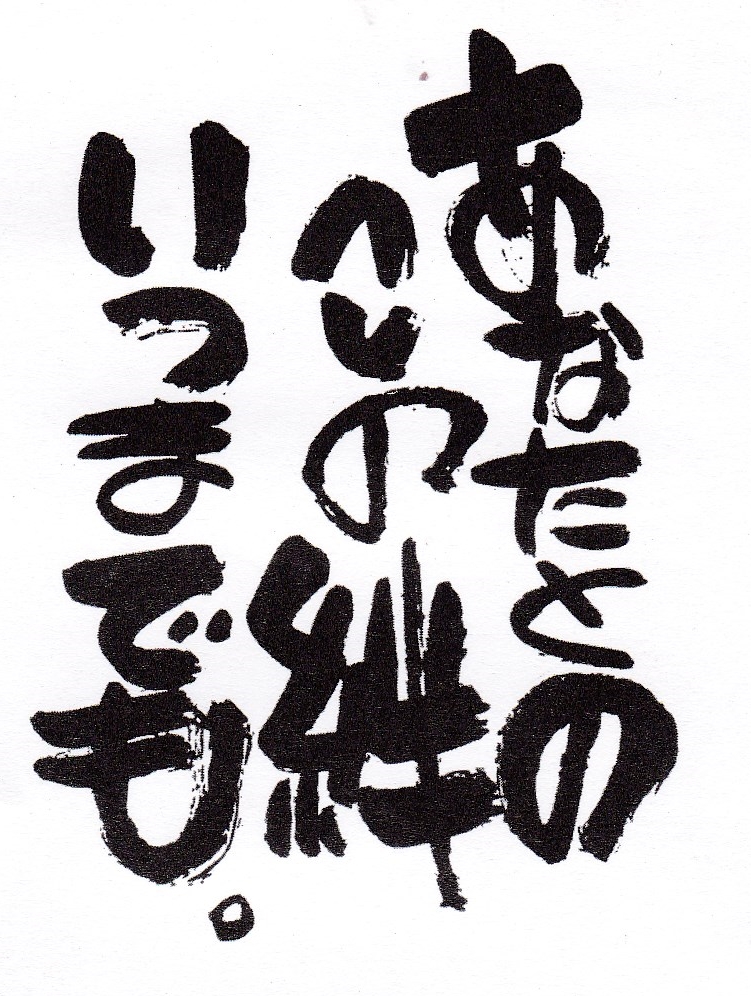 あなたとの
心の絆
いつまでも。